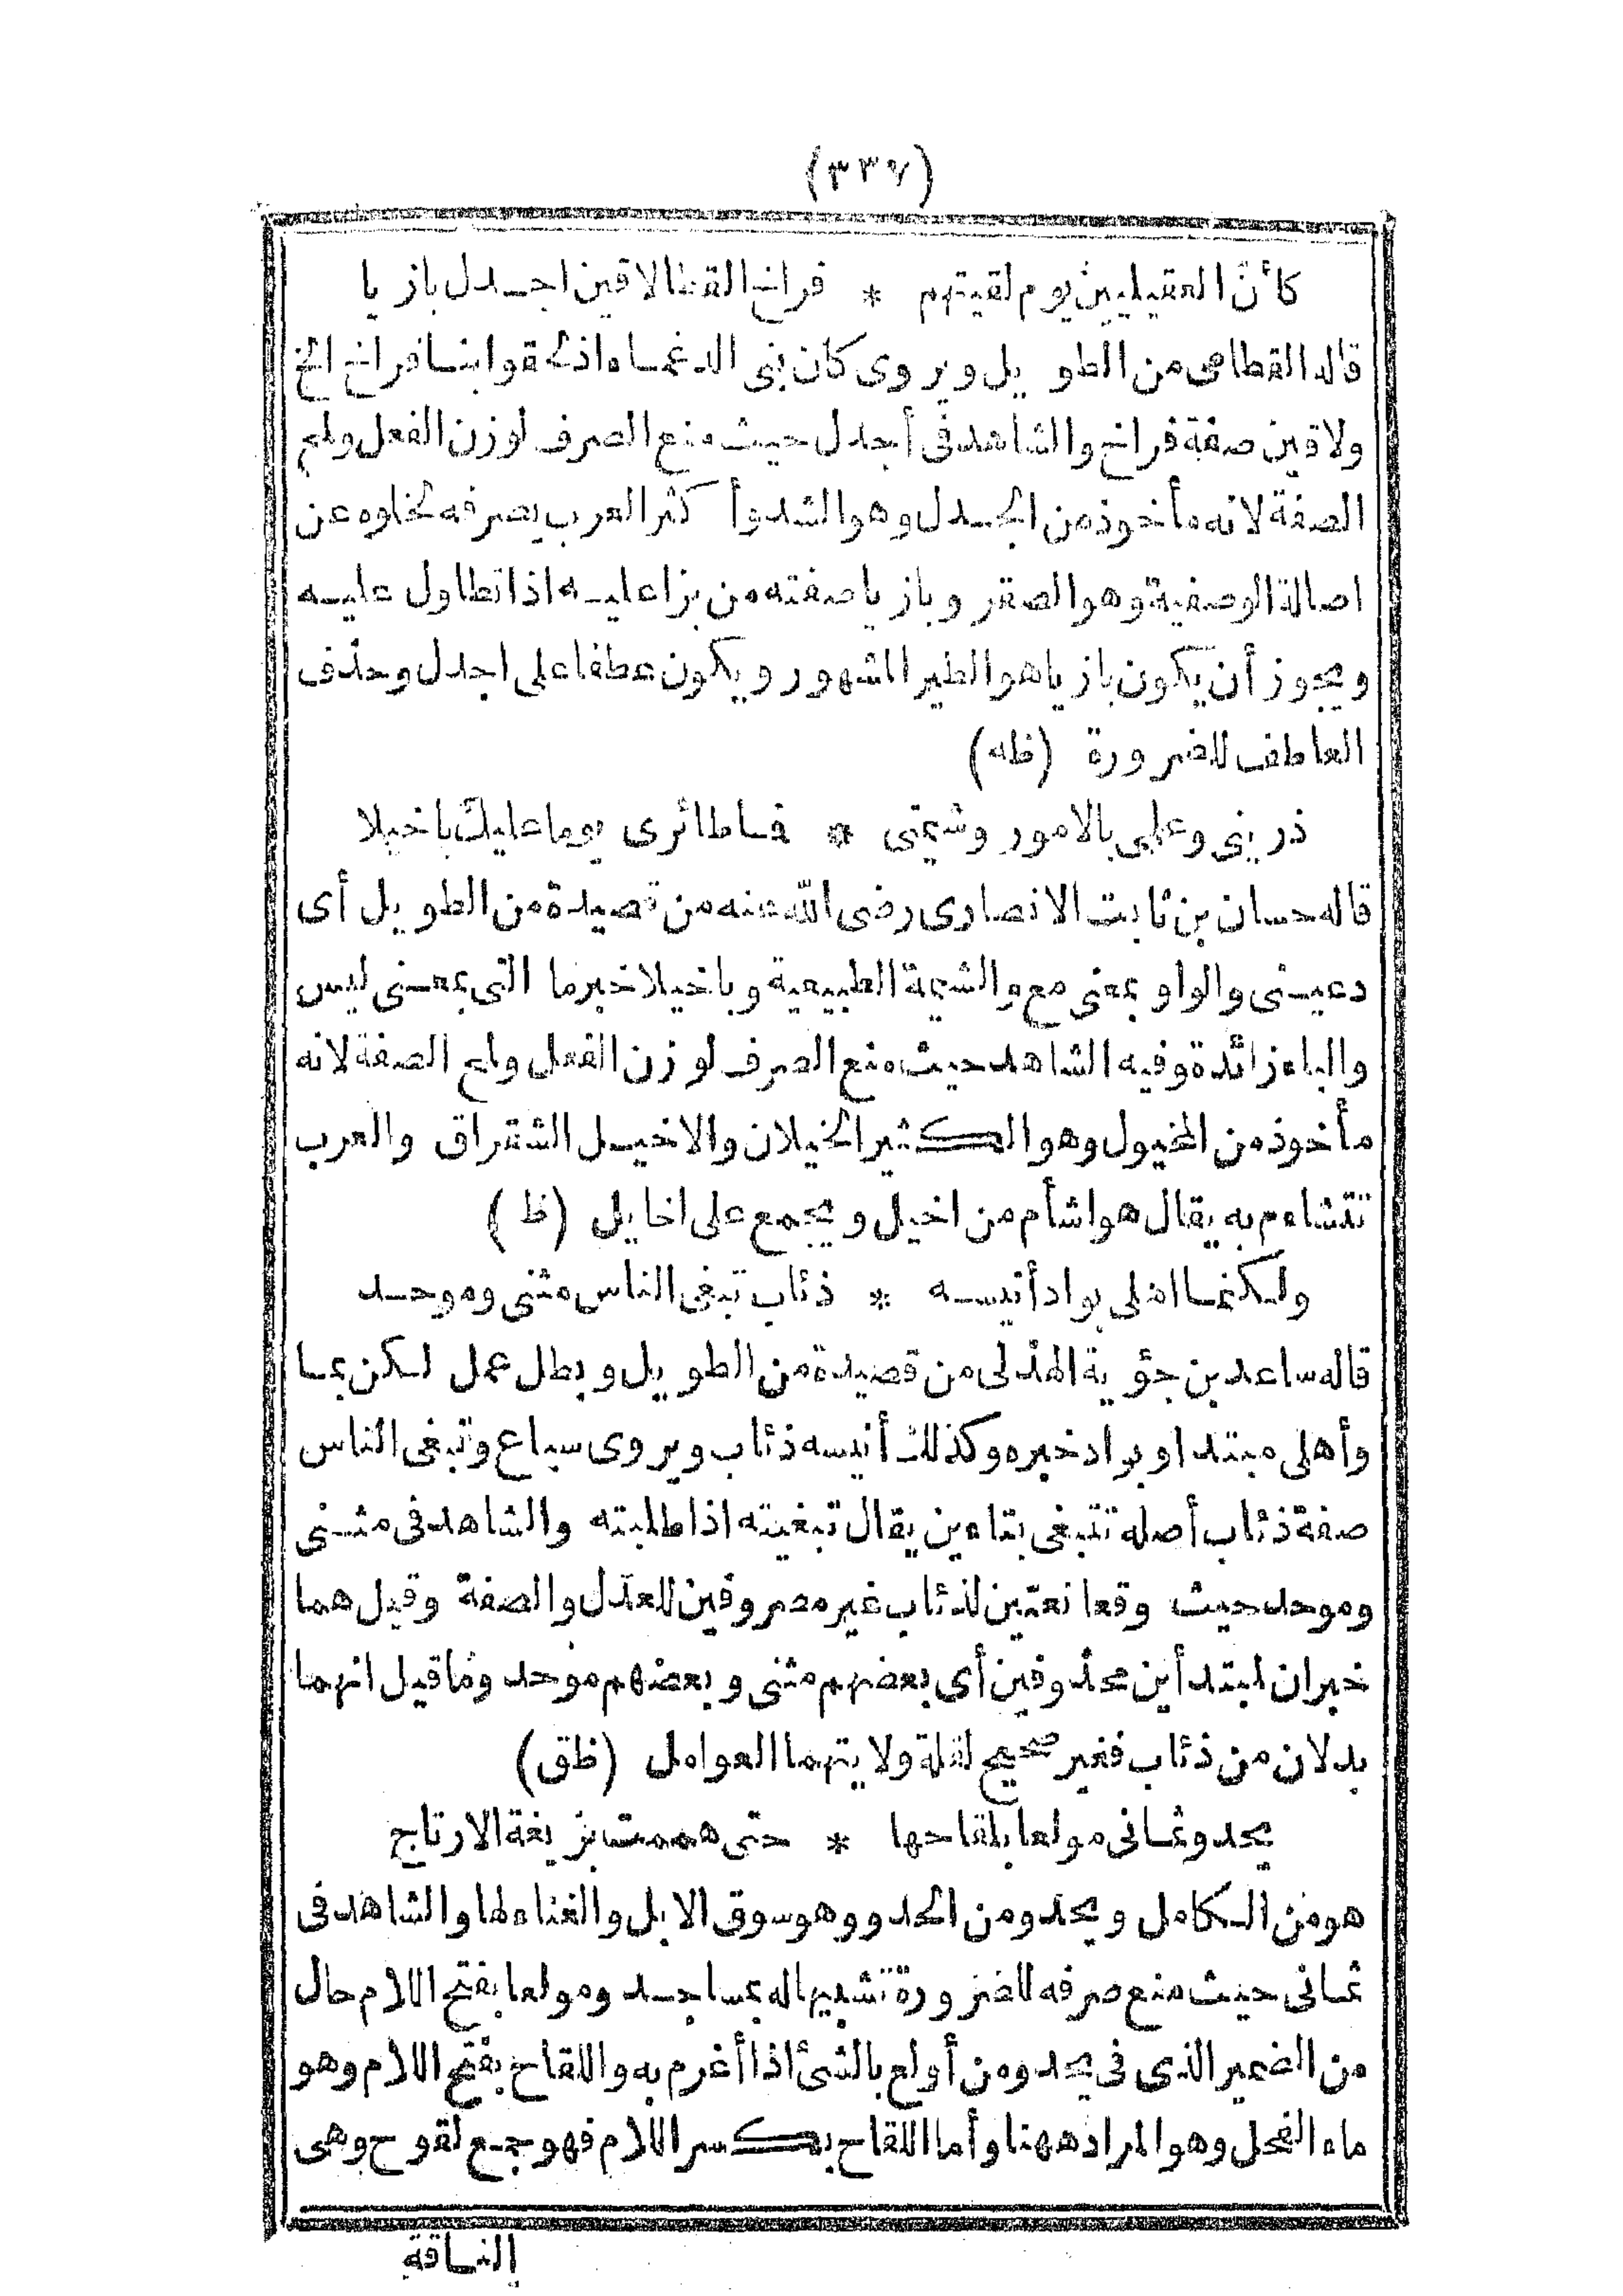 (٣٣٧)
كأن العقيليين يوم لقيتهم * فراخ القطا لاقين اجدل بازيا
قاله القطامى من الطويل ويروى كان بنى الدغماء اذ لحقوا بنا فراخ الخ
ولاقين صفة فراخ والشاهد فى أجدل حيث منع الصرف لوزن الفعل ولمح
الصفة لانه مأخوذ من الجدل وهو الشد وأكثر العرب يصرفه لخلوه عن
اصالة الوصفية وهو الصقر وبازيا صفته من بزا عليه اذا تطاول عليه
ويجوز أن يكون بازيا هو الطير المشهور ويكون عطفا على اجدل وحذف
العاطف للضرورة (ظه)
ذرينى وعلمى بالامور وشيمتى * فما طائرى يوما عليك باخيلا
قاله حسان بن ثابت الانصارى رضى الله عنه من قصيدة من الطويل أى
دعينى والواو بمعنى مع والشيمة الطبيعية وباخيلا خبر ما التى بمعنى ليس
والباء زائدة وفيه الشاهد حيث منع الصرف لوزن الفعل ولمح الصفة لانه
مأخوذ من المخيول وهو الكثير الخيلان والاخيل الشقراق والعرب
تتشاءم به يقال هو اشأم من اخيل ويجمع على اخايل (ظ)
ولكنما اهلى بواد أنيسه * ذئاب تبغى الناس مثنى وموحد
قاله ساعد بن جؤية الهذلى من قصيدة من الطويل وبطل عمل لكن بما
وأهلى مبتدا وبواد خبره وكذلك أنيسه ذئاب ويروى سباع وتبغى الناس
صفة ذئاب أصله تتبغى بتاءين يقال تبغيته اذا طلبته والشاهد فى مثنى
وموحد حيث وقعا نعتين لذئاب غير مصروفين للعدل والصفة وقيل هما
خبران لمبتدأين محذوفين أى بعضهم مثنى وبعضهم موحد وما قيل انهما
بدلان من ذئاب فغير صحيح لقلة ولايتهما العوامل (ظق)
يحدو ثمانى مولعا بلقاحها * حتى هممت بزيغة الارتاج
هو من الكامل ويحدو من الحدو وهو سوق الابل والغناء لها والشاهد فى
ثمانى حيث منع صرفه للضرورة تشبيها له بمساجد ومولعا بفتح اللام حال
من الضمير الذى فى يحدو من أولع بالشئ اذا أغرم به واللقاح بفتح اللام وهو
ماء الفحل وهو المراد ههنا وأما اللقاح بكسر اللام فهو جمع لقوح وهى
الناقة